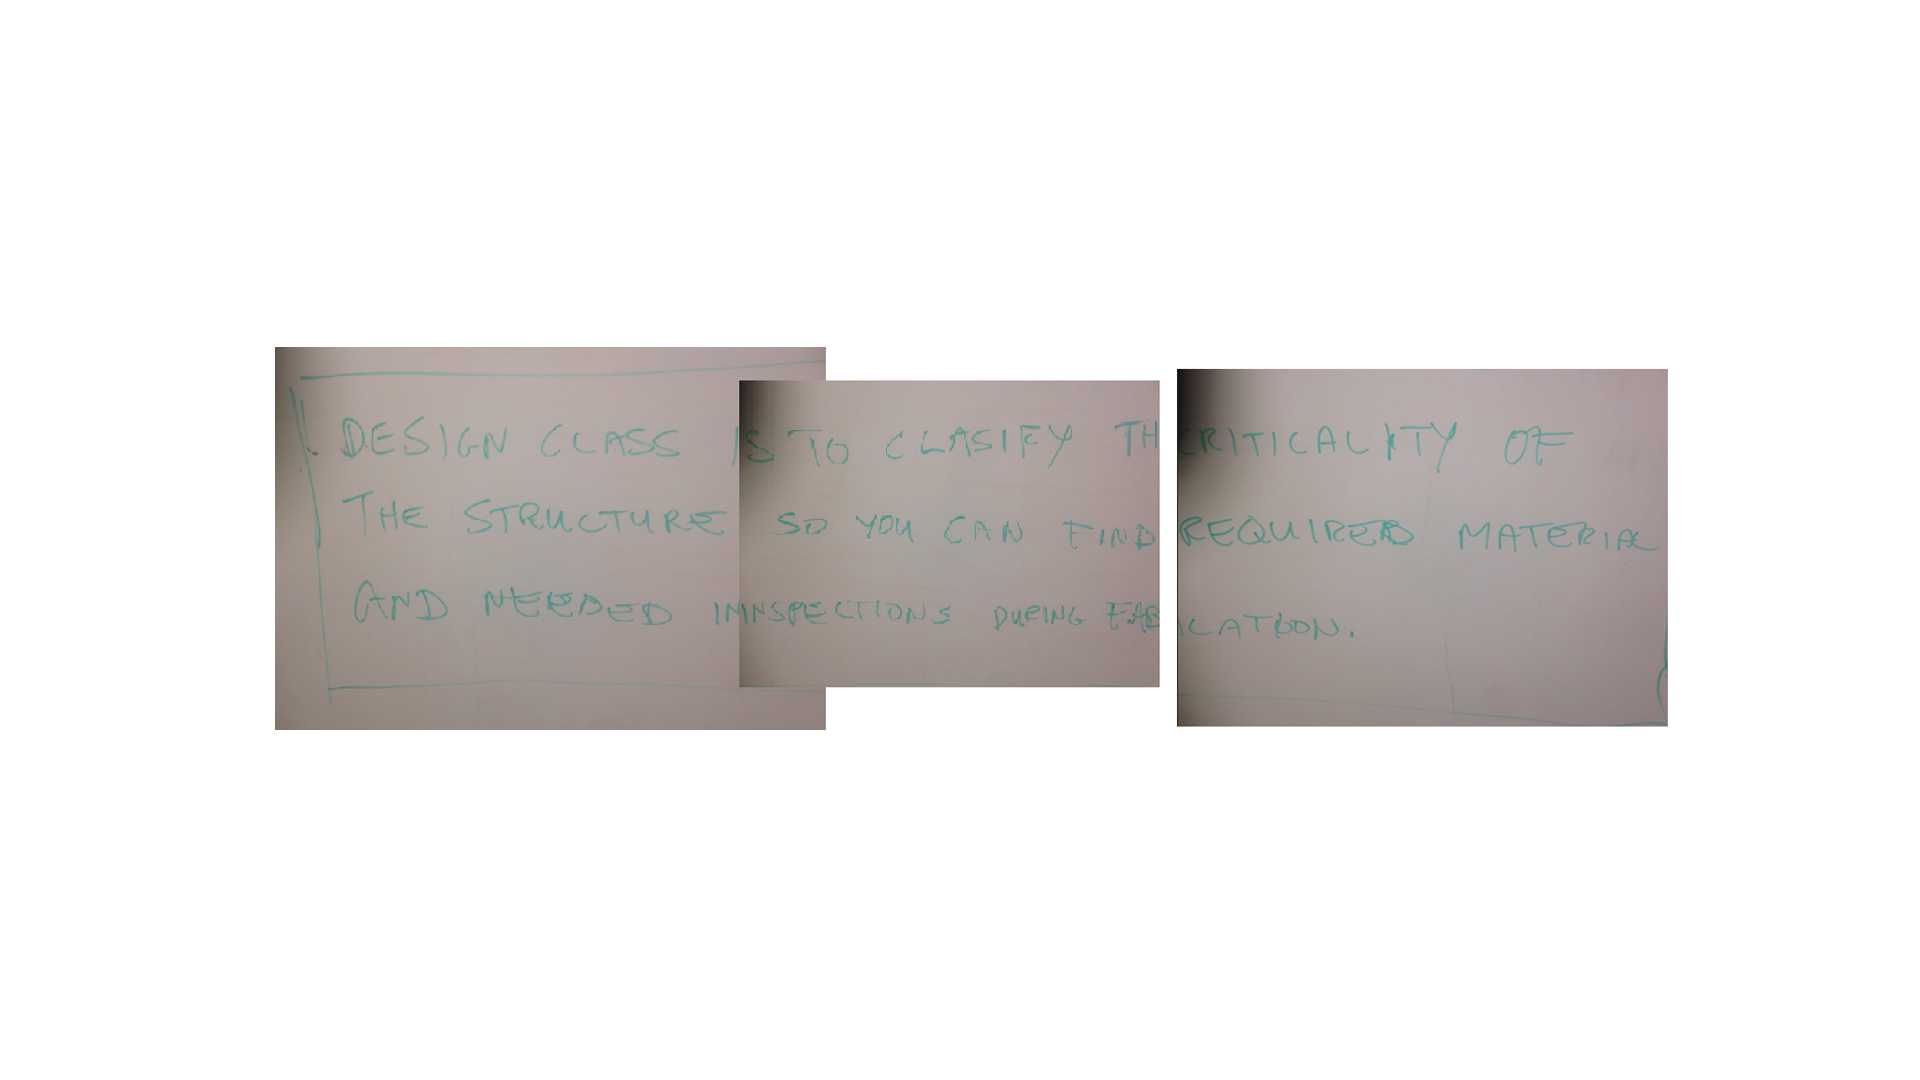 DESIGN CLASS IS TO CLASIFY TH CRITICALITY OF
THE STRUCTURE SO YOU CAN FIND REQUIRED MATERIAL
AND NEEDED INNSPECTIONS DURING FAB ICATION.